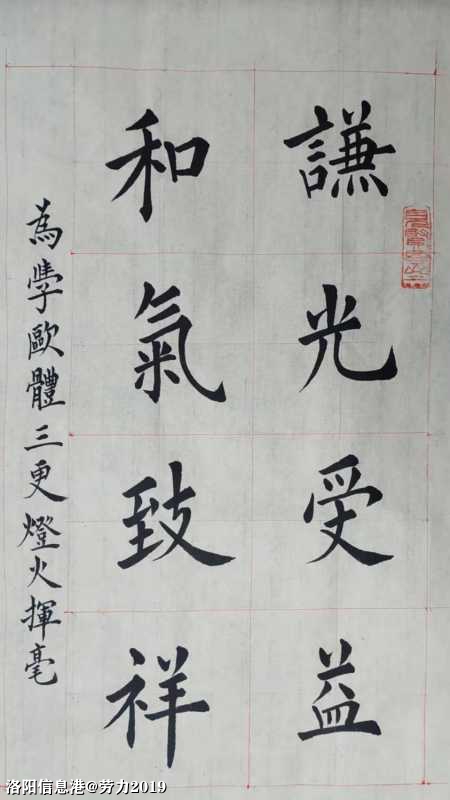 謙光受益
和氣致祥
為學歐體三更燈火揮毫
洛阳信息港@劳力2019